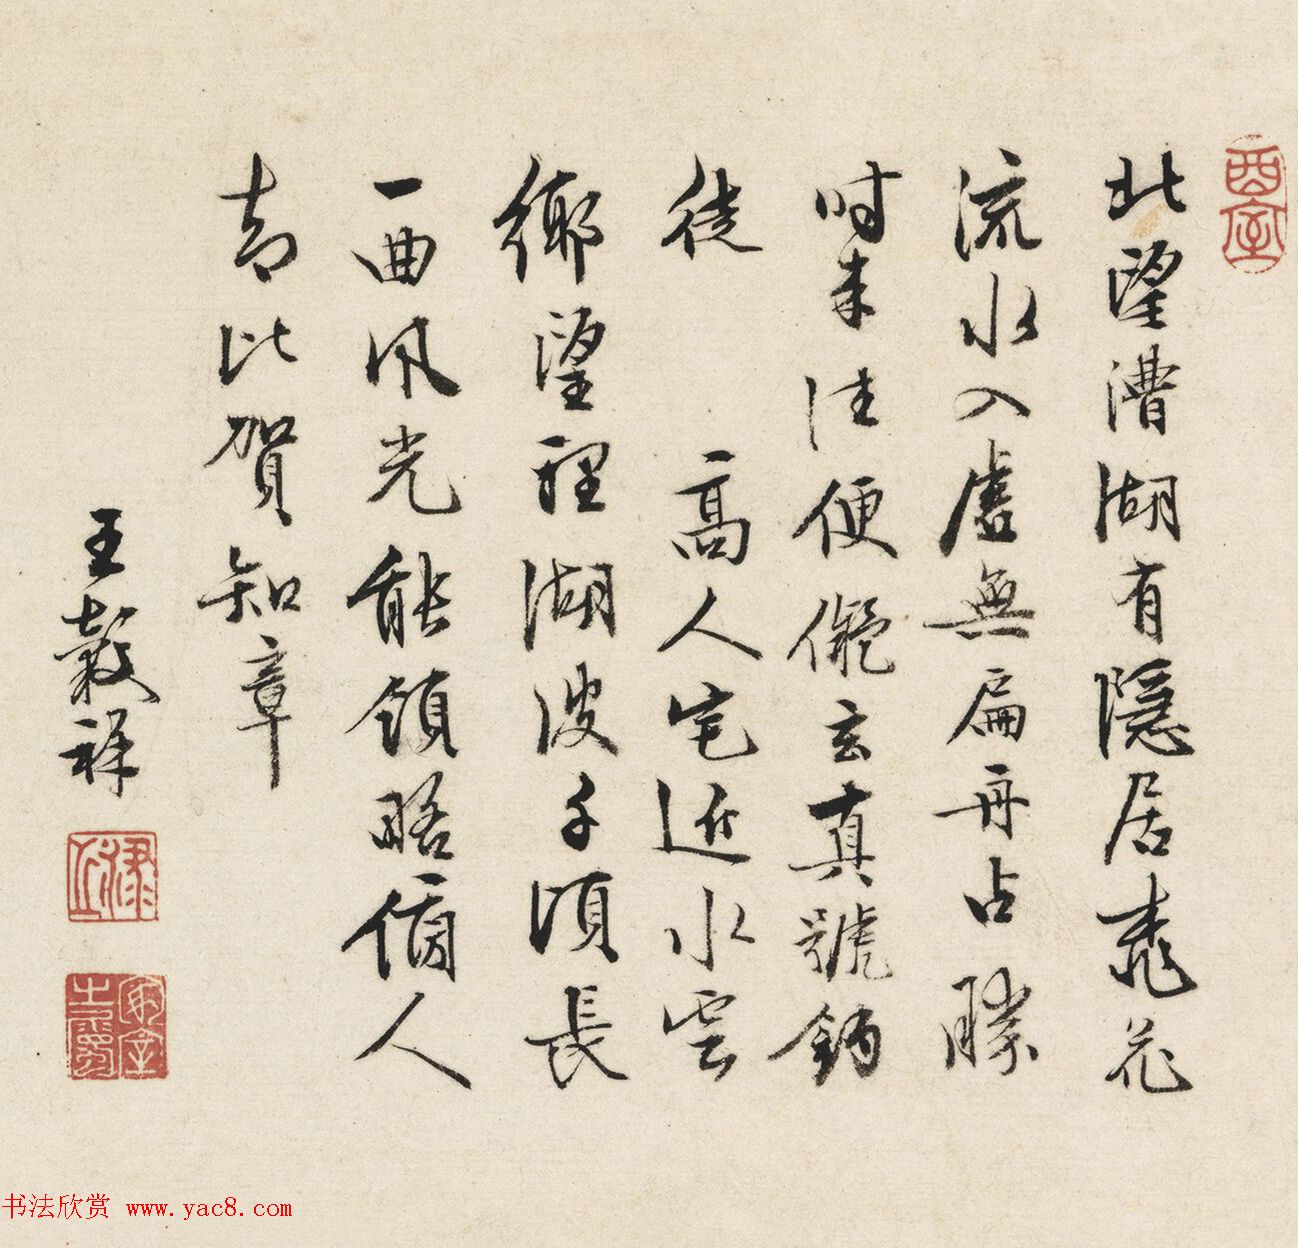 北望漕湖有隱居桃花
流水入虛無扁舟占勝
時來往便儗玄真號釣
徒 高人宅近水雲
鄉望裡湖波千頃長
一曲風光能領略個人
却比賀知章
王穀祥
酉室
书法欣赏 www.yac8.com